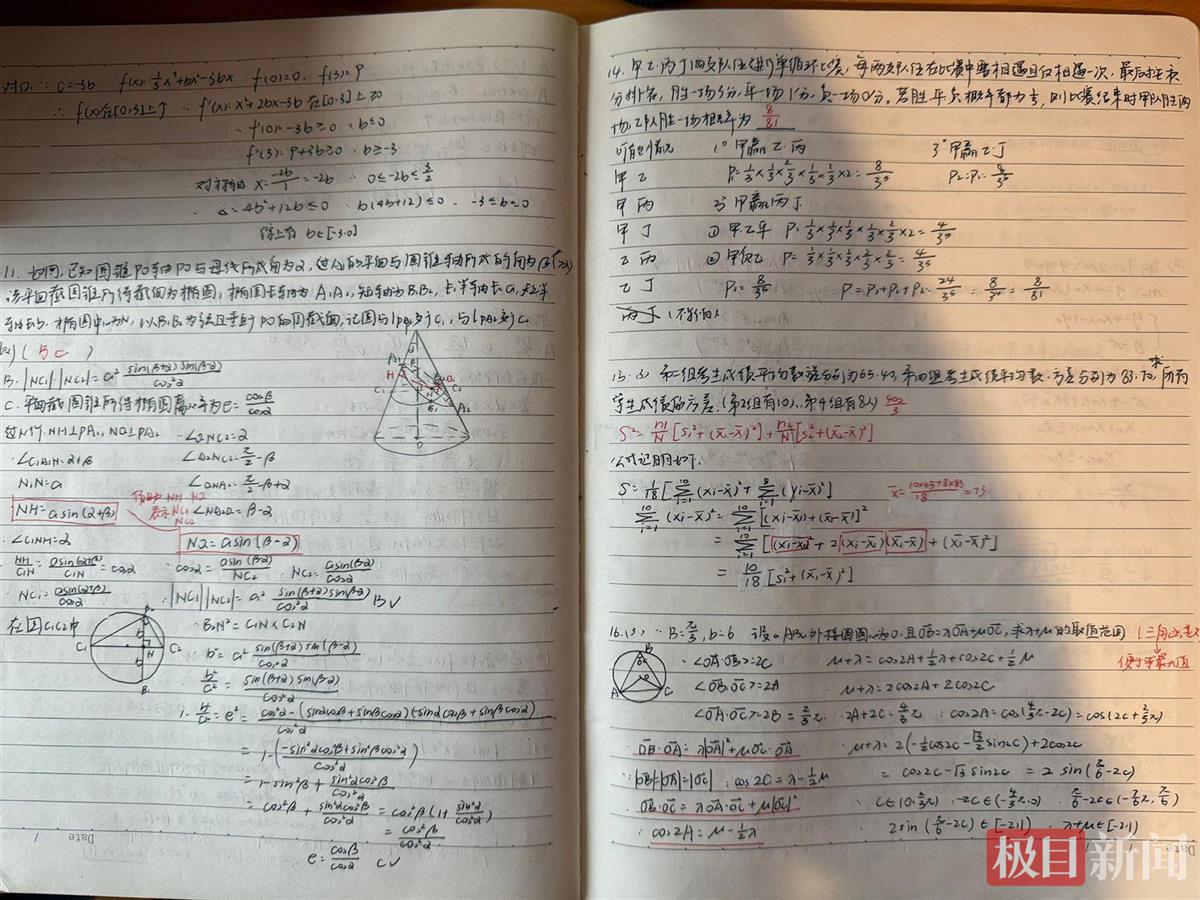 对口. ∵ c=-3b f(x)=⅓x³+bx²-3bx f(0)=0, f(3)=9
∴ f(x)在[0,3]上↑ ∵ f'(x)=x²+2bx-3b 在[0,3]上≥0
∴ f'(0)=-3b≥0 ∴ b≤0
f'(3)=9+3b≥0 ∴ b≥-3
对称轴 x=-2b/1=-2b ∵ 0≤-2b≤3/2
∴ △=4b²+12b≤0 ∴ b(4b+12)≤0 ∴ -3≤b≤0
综上有 b∈[-3,0]
11. 如图, 已知圆锥PO轴PO与母线所成角为α, 过A₁的平面与圆锥轴所成的角为β(β>α)
该平面截圆锥所得截面为椭圆, 椭圆长轴为A₁A₂, 短轴为B₁B₂, 长半轴长a, 短半
轴长b. 椭圆中心为N, 以B₁B₂为弦且垂直PO的圆截面, 记圆与PA₁交于C₁, 与PA₂交C₂
(BC)
B. |NC₁|·|NC₂|=a² sin(β+α)sin(β-α)/cos²α
C. 平面截圆锥所得椭圆离心率为e=cosβ/cosα
过N作NH⊥PA₁, NQ⊥PA₂ ∴∠QNC₂=α
∴∠C₁A₁N=α+β ∠A₂NC₂=π/2-β
N₁N=a ∠QNA₂=π/2-β+α
NH=asin(α+β) 借助NH·NQ表示NC₁ NC₂ ∠NA₂Q=β-α
∴∠C₁NH=α NQ=asin(β-α)
∴ NH/C₁N=asin(α+β)/C₁N=cosα ∴ cosα=asin(β-α)/NC₂ NC₂=asin(β-α)/cosα
∴ NC₁=asin(α+β)/cosα ∴ |NC₁||NC₂|=a² sin(β+α)sin(β-α)/cos²α B✓
在圆C₁C₂中 ∵ B₂N²=C₁N×C₂N
∴ b²=a² sin(β+α)sin(β-α)/cos²α
∴ b²/a²=sin(β+α)sin(β-α)/cos²α
1-b²/a²=e²=cos²α-(sinαcosβ+sinβcosα)(-sinαcosβ+sinβcosα)/cos²α
=1-(-sin²αcos²β+sin²βcos²α)/cos²α
=1-sin²β+sin²αcos²β/cos²α
=cos²β+sin²αcos²β/cos²α=cos²β(1+sin²α/cos²α)
=cos²β/cos²α
e=cosβ/cosα C✓
Date
14. 甲乙丙丁四支队伍进行单循环比赛, 每两支队伍在比赛中要相遇且仅相遇一次, 最后按积
分排名, 胜一场3分, 平一场1分, 负一场0分. 若胜平负概率都为⅓, 则比赛结束时甲队胜两
场, 乙队胜一场概率为 8/81
可能情况 1°甲赢乙·丙 3°甲赢乙丁
甲乙 P₁=⅓×⅓×⅔×⅓×⅔×2=8/3⁵ P₂=P₁=8/3⁵
甲丙 2°甲赢丙丁
甲丁 ①甲乙平 P=⅓×⅓×⅓×⅓×⅔×2=4/3⁵
乙丙 ②甲负乙 P=⅓×⅓×⅓×⅔×⅔=4/3⁵
乙丁 P₃=8/3⁵ P=P₁+P₂+P₃=24/3⁵=8/3⁴=8/81
丙丁 (不影响)
15. (3) 第二组考生成绩平均数方差分别为65·40, 第四组考生成绩平均数·方差分别为83·70, 求所有
学生成绩的方差. (第2组有10人, 第4组有8人) 400/3
S²=n₁/N[S₁²+(x̄₁-x̄)²]+n₂/N[S₂²+(x̄₂-x̄)²]
公式证明如下.
S²=1/18[∑(xi-x̄)²+∑(yi-x̄)²] x̄=10×65+8×83/18=73
∑(xi-x̄)²=∑[(xi-x̄₁)+(x̄₁-x̄)]²
=∑[(xi-x̄₁)²+2(xi-x̄₁)(x̄₁-x̄)+(x̄₁-x̄)²]
=10/18[S₁²+(x̄₁-x̄)²]
16. (3) ∵ B=π/3, b=6 设△ABC外接圆圆心为O. 且OB=λOA+μOC, 求λ+μ的取值范围
∴<OA·OB>=2C μ+λ=cos2A+½λ+cos2C+½μ 便于求最大值
<OB·OC>=2A ∴ μ+λ=2cos2A+2cos2C
<OA·OC>=2B=⅔π ∴2A+2C=4/3π ∴cos2A=cos(4/3π-2C)=cos(2C+⅔π)
∵ OB·OA=λ|OA|²+μOC·OA ∴ μ+λ=2(-½cos2C-√3/2sin2C)+2cos2C
∵ |OB|=|OA|=|OC| ∴ cos2C=λ-½μ =cos2C-√3sin2C=2sin(π/6-2C)
OB·OC=λOA·OC+μ|OC|² ∵ C∈(0,⅔π) ∴ -2C∈(-4/3π,0) ∴ π/6-2C∈(-7/6π,π/6)
∴ cos2A=μ-½λ ∴ 2sin(π/6-2C)∈[-2,1) ∴ λ+μ∈[-2,1)
Date
极目新闻